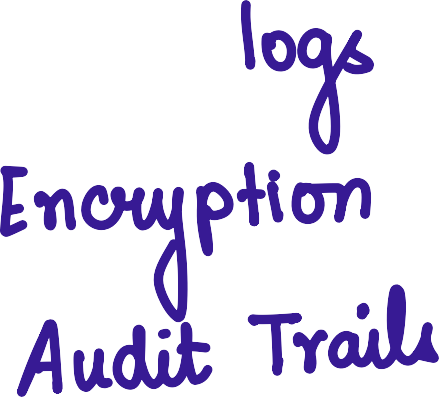 logs
Encryption
Audit Trails